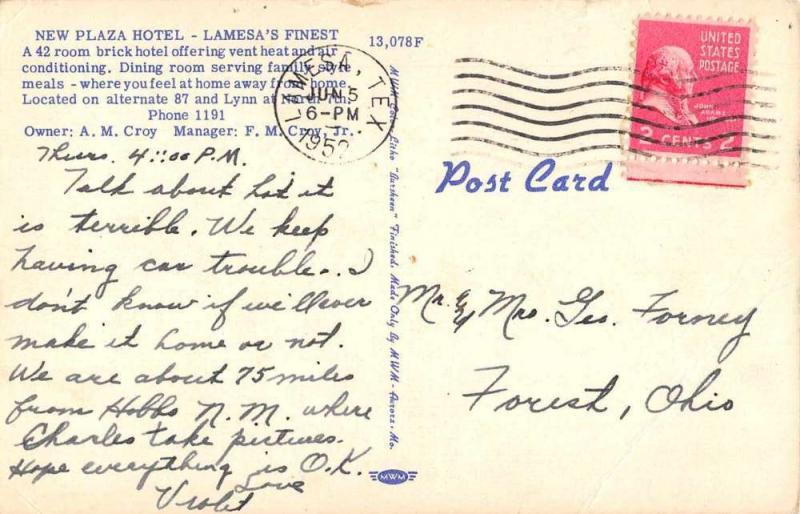 NEW PLAZA HOTEL - LAMESA'S FINEST
A 42 room brick hotel offering vent heat and air
conditioning. Dining room serving family style
meals - where you feel at home away from home.
Located on alternate 87 and Lynn at North 7th.
Phone 1191
Owner: A. M. Croy Manager: F. M. Croy, Jr.
13,078F
LAMESA, TEX
JUN 5
6-PM
1952
UNITED
STATES
POSTAGE
JOHN
ADAMS
2 CENTS 2
Post Card
Thurs. 4:00 P.M.
Talk about hot it
is terrible. We keep
having car trouble.. I
don't know if we'll ever
make it home or not.
We are about 75 miles
from Hobbs N.M. where
Charles take pictures.
Hope everything is O.K.
Love
Violet
Litho "Darsheen" Finished. Made Only By MWM-Aurora, Mo.
MWM
Mr. & Mrs. Geo. Forney
Forest, Ohio